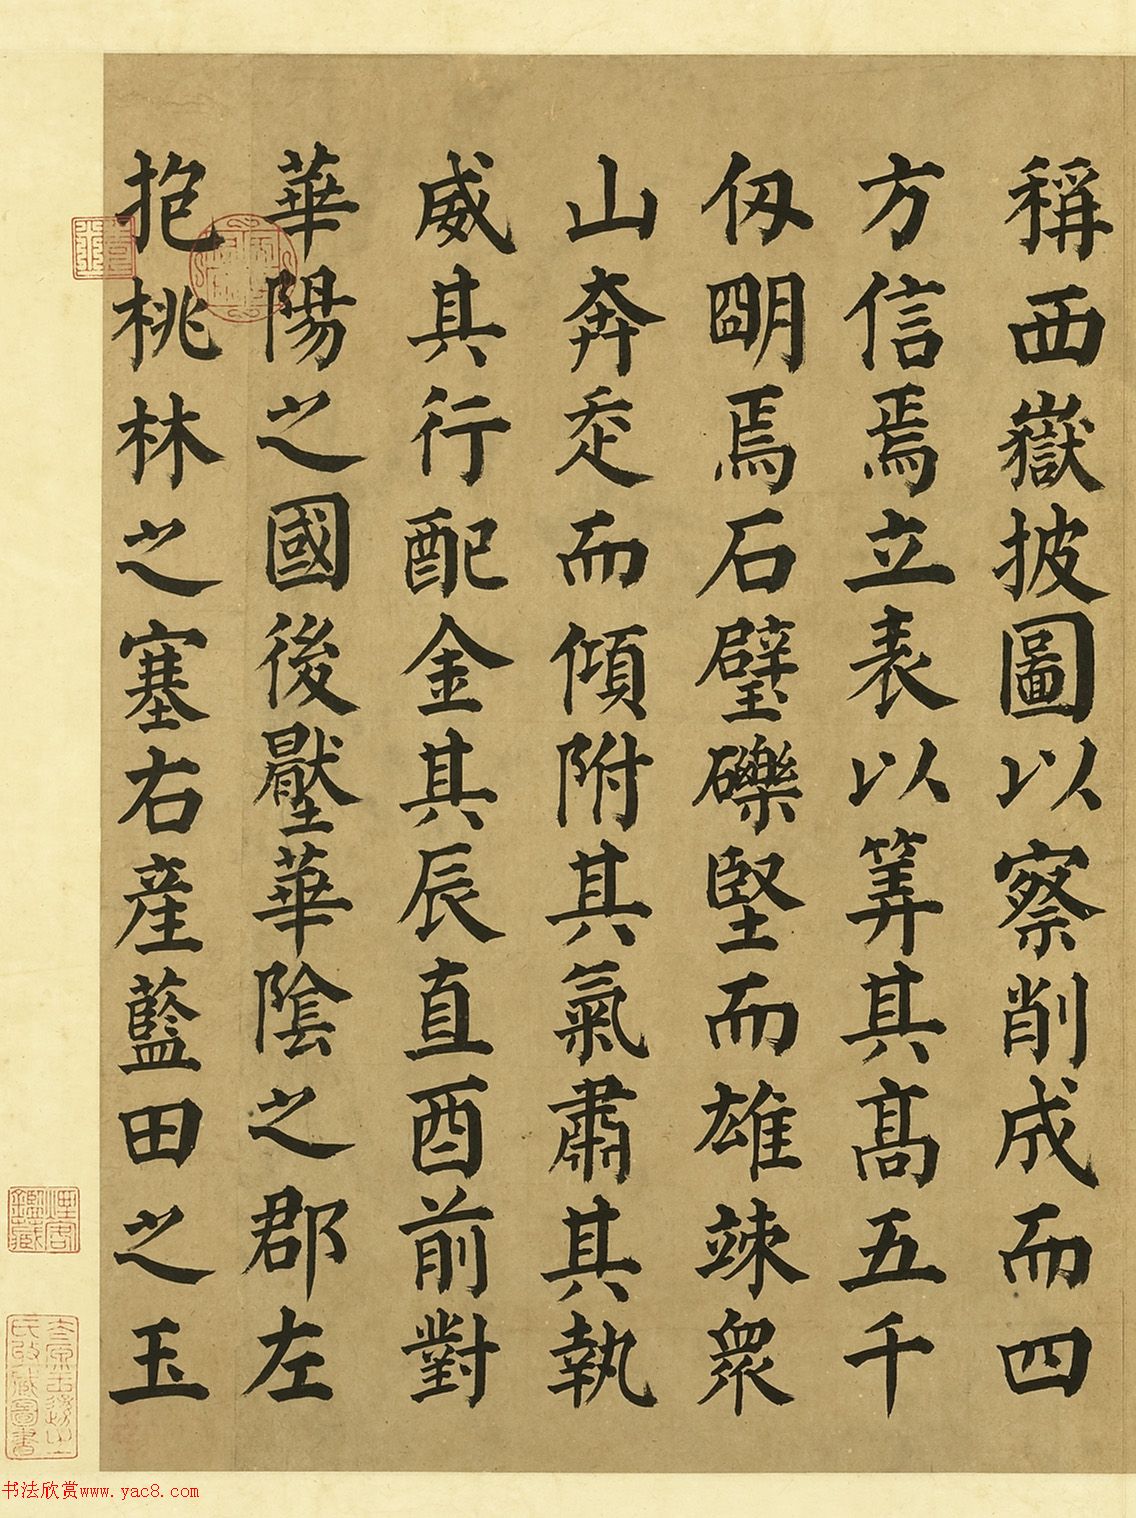 稱西嶽披圖以察削成而四
方信焉立表以筭其高五千
仞朙焉石壁礫堅而雄竦衆
山奔走而傾附其氣肅其執
威其行配金其辰直酉前對
華陽之國後壓華陰之郡左
抱桃林之塞右産藍田之玉
煙客鑑藏
书法欣赏www.yac8.com